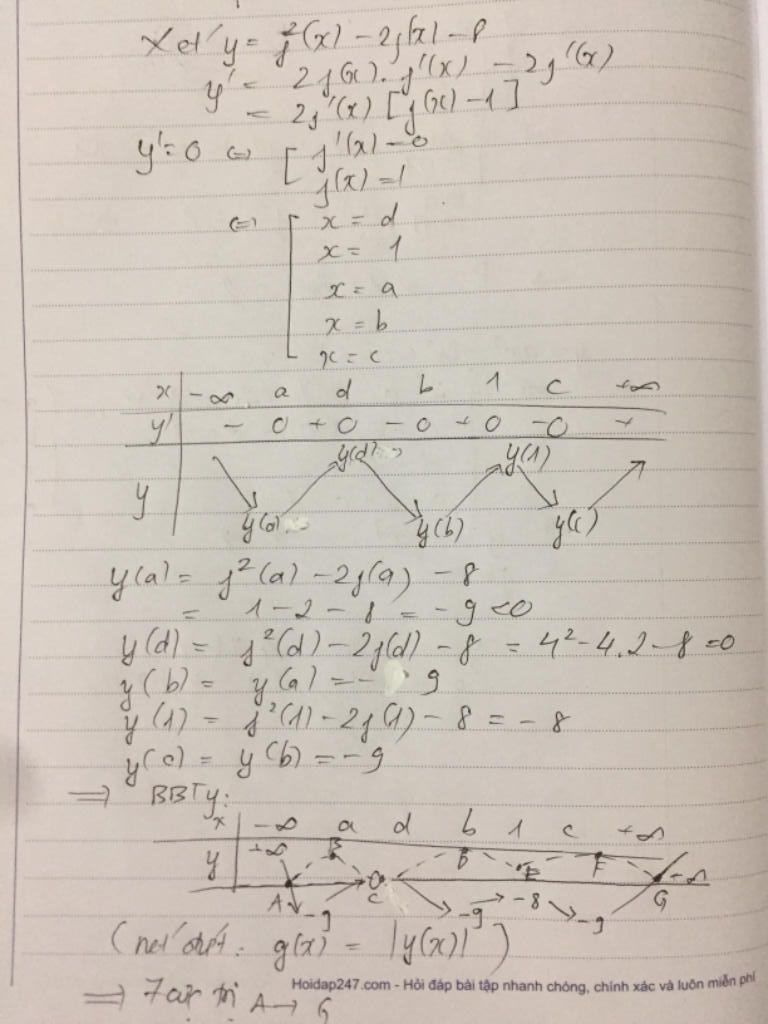 Xét y = f²(x) - 2f(x) - 8
y' = 2f(x). f'(x) - 2f'(x)
= 2f'(x) [f(x) - 1]
y' = 0 ⇔ [ f'(x) = 0
f(x) = 1
⇔ [ x = d
x = 1
x = a
x = b
x = c
x -∞ a d b 1 c +∞
y' - 0 + 0 - 0 + 0 - 0 +
y(d) y(1)
y
y(a) y(b) y(c)
y(a) = f²(a) - 2f(a) - 8
= 1 - 2 - 8 = -9 < 0
y(d) = f²(d) - 2f(d) - 8 = 4² - 4.2 - 8 = 0
y(b) = y(a) = - 9
y(1) = f²(1) - 2f(1) - 8 = -8
y(c) = y(b) = -9
⇒ BBTy:
x -∞ a d b 1 c +∞
y +∞ B D E F +∞
A C G
-9 -9 -8 -9
(nét đứt: g(x) = |y(x)|)
⇒ 7 cực trị A → G
Hoidap247.com - Hỏi đáp bài tập nhanh chóng, chính xác và luôn miễn phí